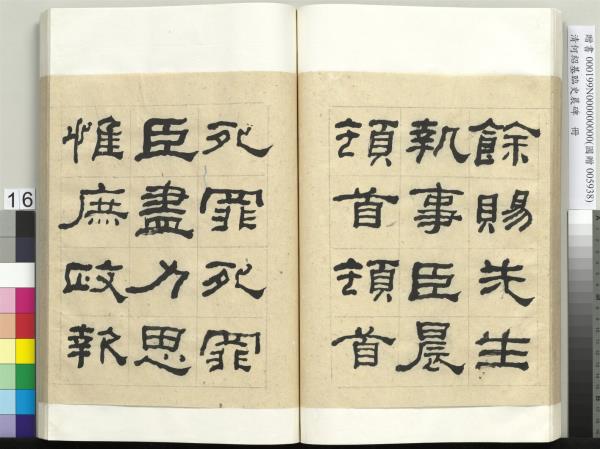 贈書 000199N000000000(圖贈 005938)
清何紹基臨史晨碑 冊
餘賜先生
執事臣晨
頓首頓首
死罪死罪
臣盡力思
惟庶政報
16